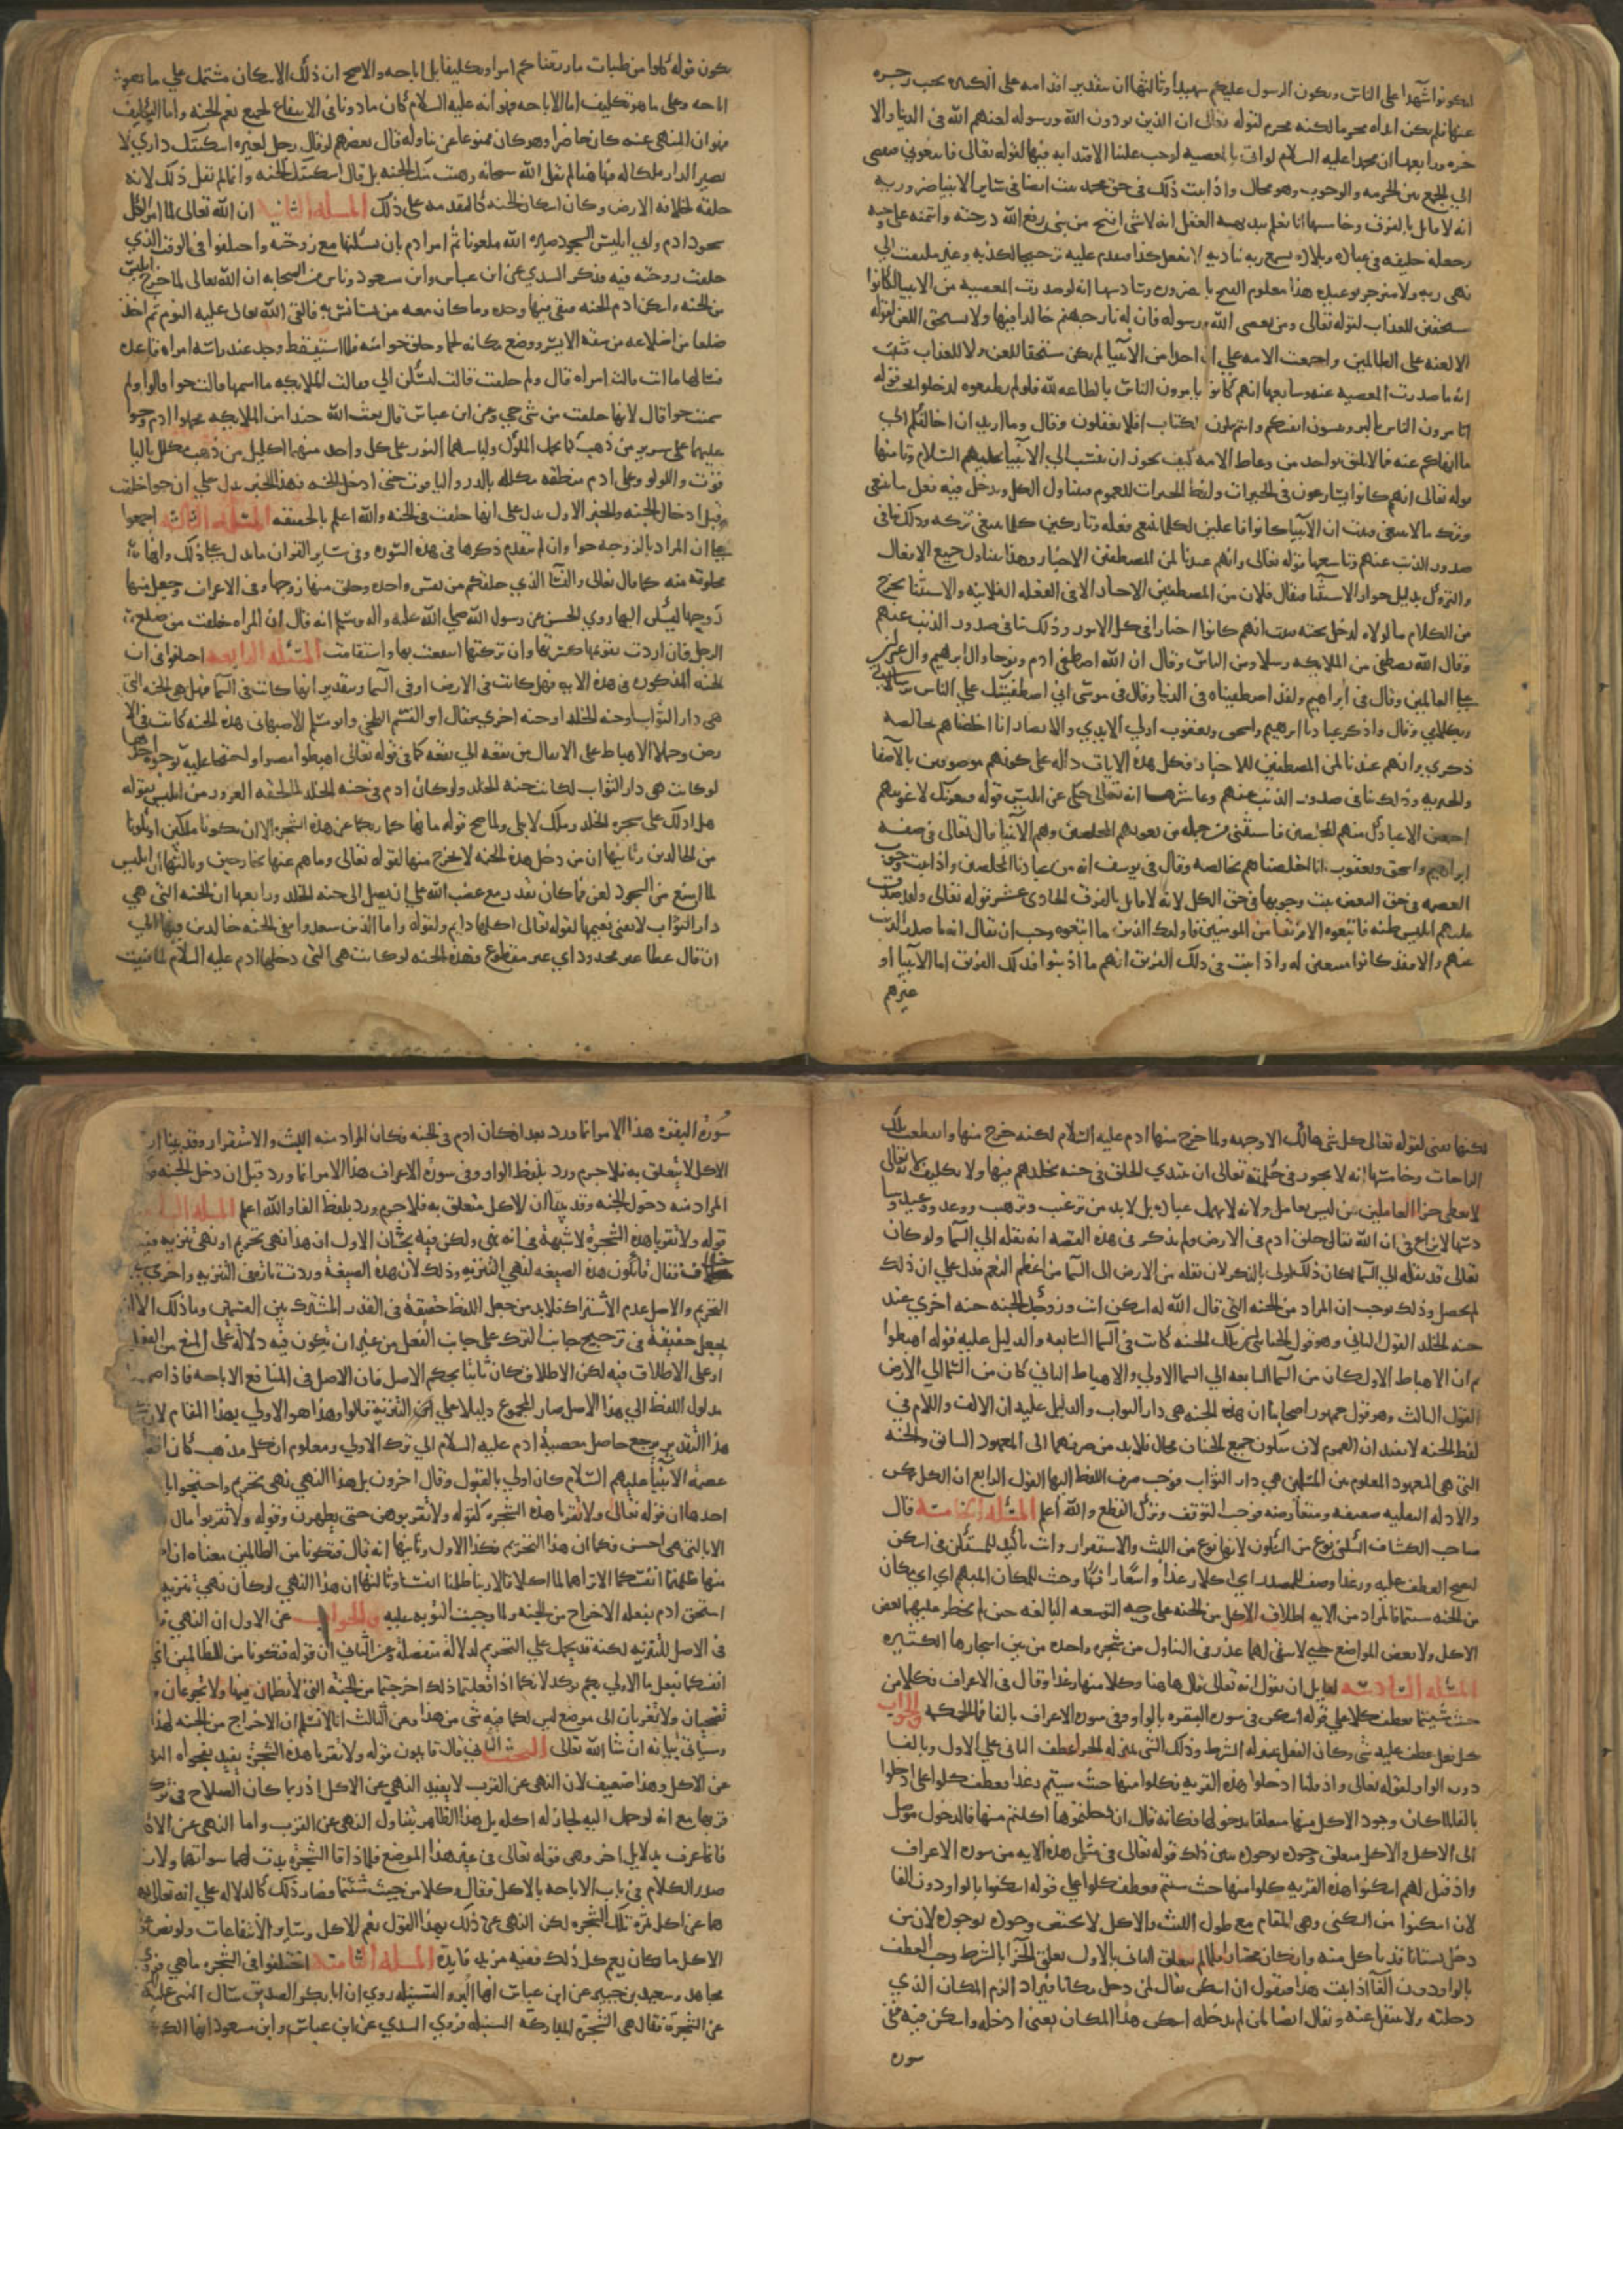 لتكونوا شهدا على الناس ويكون الرسول عليكم شهيدا وثالثها ان بتقدير اقدامه على الكبيره يجب زجره
عنها فلم يكن ايذاه محرما لكنه محرم لقوله تعالى ان الذين يوذون الله ورسوله لعنهم الله فى الدنيا والا
خره ورابعها ان محمدا عليه السلام لو اتى بالمعصيه لوجب علينا الاقتدا به فيها لقوله تعالى فاتبعونى فيفضى
الى الجمع بين الحرمه والوجوب وهو محال واذا ثبت ذلك فى حق محمد ثبت ايضا فى ساير الانبيا ضروريه
انه لا قايل بالفرق وخامسها انا نعلم ببديهه العقل انه لا شى اقبح من نبى رفع الله درجته وائتمنه على وحيه
وجعله خليفه فى عباده وبلاده يسمع ربه يناديه لا تفعل كذا فيقدم عليه ترجيحا لكذبه وغير ملتفت الى
نهى ربه ولا منزجر بوعيده هذا معلوم القبح بالضروره وسادسها انه لو صدرت المعصيه من الانبيا لكانوا
مستحقين للعذاب لقوله تعالى ومن يعصى الله ورسوله فان له نار جهنم خالدا فيها ولا ستحق اللعن لقوله
الا لعنه على الظالمين واجمعت الامه على ان احدا من الانبيا لم يكن مستحقا للعن ولا للعذاب فثبت
انه ما صدرت المعصيه عنهم وسابعها انهم كانوا يامرون الناس بالطاعه لله فلو لم يطيعوه لدخلوا تحت قوله
اتامرون الناس بالبر وتنسون انفسكم وانتم تتلون الكتاب افلا تعقلون وقال وما اريد ان اخالفكم الى
ما انهاكم عنه فما لا يليق بواحد من وعاظ الامه كيف يجوز ان ينسب الى الانبيا عليهم السلام وثامنها
قوله تعالى انهم كانوا يسارعون فى الخيرات ولفظ الخيرات للعموم فيتناول الكل ويدخل فيه فعل ما ينبغى
وترك ما لا ينبغى فثبت ان الانبيا كانوا فاعلين لكل ما ينبغى فعله وتاركين كل ما ينبغى تركه وذلك ينافى
صدور الذنب عنهم وتاسعها قوله تعالى وانهم عندنا لمن المصطفين الاخيار وهذا يتناول جميع الافعال
والتروك بدليل جواز الاستثنا فيقال فلان من المصطفين الاخيار الا فى الفعله الفلانيه والاستثنا يخرج
من الكلام ما لولاه لدخل تحته فثبت انهم كانوا اخيارا فى كل الامور وذلك ينافى صدور الذنب عنهم
وقال الله يصطفى من الملايكه رسلا ومن الناس وقال ان الله اصطفى ادم ونوحا وال ابراهيم وال عمران
على العالمين وقال فى ابراهيم ولقد اصطفيناه فى الدنيا وقال فى موسى انى اصطفيتك على الناس برسالاتى
وبكلامى وقال واذكر عبادنا ابرهيم واسحق ويعقوب اولى الايدى والابصار انا اخلصناهم بخالصه
ذكرى وانهم عندنا لمن المصطفين الاخيار فكل هذه الايات داله على كونهم موصوفين بالاصطفا
والخيريه وذلك ينافى صدور الذنب عنهم وعاشرها انه تعالى حكى عن ابليس قوله فبعزتك لاغوينهم
اجمعين الا عبادك منهم المخلصين فاستثنى من جمله من يغويهم المخلصين وهم الانبيا قال تعالى فى صفه
ابراهيم واسحق ويعقوب انا اخلصناهم بخالصه وقال فى يوسف انه من عبادنا المخلصين واذا ثبت وجوب
العصمه فى حق البعض ثبت وجوبها فى حق الكل لانه لا قايل بالفرق الحادى عشر قوله تعالى ولقد صدق
عليهم ابليس ظنه فاتبعوه الا فريقا من المومنين فاوليك الذين ما اتبعوه وجب ان يقال انه ما صدر الذنب
عنهم والا فقد كانوا متبعين له واذا ثبت فى ذلك الفريق انهم ما اذنبوا فذلك الفريق اما الانبيا او
غيرهم
يكون قوله كلوا من طيبات ما رزقناكم امرا وتكليفا بل اباحه والاصح ان ذلك الاسكان مشتمل على ما هو
اباحه وعلى ما هو تكليف اما الاباحه فهو انه عليه السلام كان ماذونا فى الانتفاع بجميع نعم الجنه واما التكليف
فهو ان المنهى عنه كان حاضرا وهو كان ممنوعا عن تناوله قال بعضهم لو قال رجل لغيره اسكنتك دارى لا
تصير الدار ملكا له فهاهنا لم يقل الله سبحانه وهبت منك الجنه بل قال اسكنتك الجنه وانما لم يقل ذلك لانه
خلقه لخلافه الارض وكان اسكان الجنه كالتقدمه على ذلك المسله الثانيه ان الله تعالى لما امر الكل
بسجود ادم وابى ابليس السجود صيره الله ملعونا ثم امر ادم بان يسكنها مع زوجته واختلفوا فى الوقت الذى
خلقت زوجته فيه فذكر السدى عن ابن عباس وابن مسعود وناس من الصحابه ان الله تعالى لما اخرج ابليس
من الجنه واسكن ادم الجنه فبقى فيها وحده وما كان معه من يستانس به فالقى الله تعالى عليه النوم ثم اخذ
ضلعا من اضلاعه من شقه الايسر ووضع مكانه لحما وخلق حوا منه فلما استيقظ وجد عند راسه امراه قاعده
فسالها ما انت قالت امراه قال ولم خلقت قالت لتسكن الى فقالت الملايكه ما اسمها قالت حوا قالوا ولم
سميت حوا قال لانها خلقت من شى حى وعن ابن عباس قال بعث الله جندا من الملايكه فحملوا ادم وحوا
عليهما على سرير من ذهب كما يحمل الملوك ولباسهما النور على كل واحد منهما اكليل من ذهب مكلل باليا
قوت واللولو وعلى ادم منطقه مكلله بالدر والياقوت حتى ادخل الجنه فهذا الخبر يدل على ان حوا خلقت
قبل ادخال الجنه والخبر الاول يدل على انها خلقت فى الجنه والله اعلم بالحقيقه المسله الثالثه اجمعوا
على ان المراد بالزوجه حوا وان لم يتقدم ذكرها فى هذه السوره وفى ساير القران ما يدل على ذلك وانها
مخلوقه منه كما قال تعالى فى النسا الذى خلقكم من نفس واحده وخلق منها زوجها وفى الاعراف وجعل منها
زوجها ليسكن اليها روى الحسن عن رسول الله صلى الله عليه واله وسلم انه قال ان المراه خلقت من ضلع
الرجل فان اردت تقويمها كسرتها وان تركتها انتفعت بها واستقامت المسئله الرابعه اختلفوا فى ان
الجنه المذكوره فى هذه الايه هل كانت فى الارض او فى السما وبتقدير انها كانت فى السما فهل هى الجنه التى
هى دار الثواب او جنه الخلد او جنه اخرى فقال ابو القسم البلخى وابو مسلم الاصبهانى هذه الجنه كانت فى الا
رض وحملا الاهباط على الانتقال من بقعه الى بقعه كما فى قوله تعالى اهبطوا مصرا واحتجا عليه بوجوه احدها
لو كانت هى دار الثواب لكانت جنه الخلد ولو كان ادم فى جنه الخلد لما لحقه الغرور من ابليس بقوله
هل ادلك على شجره الخلد وملك لا يبلى ولما صح قوله ما نهاكما ربكما عن هذه الشجره الا ان تكونا ملكين او تكونا
من الخالدين وثانيها ان من دخل هذه الجنه لا يخرج منها لقوله تعالى وما هم عنها بمخارجين وثالثها ان ابليس
لما امتنع من السجود لعن فما كان يقدر مع غضب الله على ان يصل الى جنه الخلد ورابعها ان الجنه التى هى
دار الثواب لا يفنى نعيمها لقوله تعالى اكلها دايم ولقوله واما الذين سعدوا ففى الجنه خالدين فيها الى
ان قال عطا غير مجذوذ اى غير مقطوع فهذه الجنه لو كانت هى التى دخلها ادم عليه السلام لما فنيت
لكنها تفنى لقوله تعالى كل شى هالك الا وجهه ولما خرج منها ادم عليه السلام لكنه خرج منها وانقطعت تلك
الراحات وخامسها انه لا يجوز فى حكمته تعالى ان يبتدى الخلق فى جنه يخلدهم فيها ولا تكليف لانه تعالى
لا يعطى جزا العاملين من ليس بعامل ولانه لا يهمل عباده بل لا بد من ترغيب وترهيب ووعد ووعيد وسا
دسها لا نزاع فى ان الله تعالى خلق ادم فى الارض ولم يذكر فى هذه القصه انه نقله الى السما ولو كان
تعالى قد نقله الى السما لكان ذلك اولى بالذكر لان نقله من الارض الى السما من اعظم النعم فدل على ان ذلك
لم يحصل وذلك يوجب ان المراد من الجنه التى قال الله له اسكن انت وزوجك الجنه جنه اخرى غير
جنه الخلد القول الثانى وهو قول الجبائى ان تلك الجنه كانت فى السما السابعه والدليل عليه قوله اهبطوا
ثم ان الاهباط الاول كان من السما السابعه الى السما الاولى والاهباط الثانى كان من السما الى الارض
القول الثالث وهو قول جمهور اصحابنا ان هذه الجنه هى دار الثواب والدليل عليه ان الالف واللام فى
لفظ الجنه لا يفيدان العموم لان سكون جميع الجنان محال فلا بد من صرفهما الى المعهود السابق والجنه
التى هى المعهود المعلوم بين المسلمين هى دار الثواب فوجب صرف اللفظ اليها القول الرابع ان الكل ممكن
والادله النقليه ضعيفه ومتعارضه فوجب التوقف وترك القطع والله اعلم المسئله الخامسه قال
صاحب الكشاف السكنى نوع من السكون لانها نوع من اللبث والاستقرار وانت تاكيد للمستكن فى اسكن
ليصح العطف عليه ورغدا وصف للمصدر اى اكلا رغدا واسعا رافها وحيث للمكان المبهم اى اى مكان
من الجنه شيتما فالمراد من الايه اطلاق الاكل من الجنه على وجه التوسعه البالغه حين لم يحظر عليهما بعض
الاكل ولا بعض المواضع حتى لا يبقى لهما عذر فى التناول من شجره واحده من بين اشجارها الكثيره
المسئله السادسه لقايل ان يقول انه تعالى قال هاهنا وكلا منها رغدا وقال فى الاعراف فكلا من
حيث شيتما فعطف كلا على قوله اسكن فى سوره البقره بالواو وفى سوره الاعراف بالفا فما الحكمه والجواب
كل فعل عطف عليه شى وكان الفعل بمنزله الشرط وذلك الشى بمنزله الجزا عطف الثانى على الاول بالفا
دون الواو لقوله تعالى واذ قلنا ادخلوا هذه القريه فكلوا منها حيث شيتم رغدا فعطف كلوا على ادخلوا
بالفا لما كان وجود الاكل منها متعلقا بدخولها فكانه قال ان دخلتموها اكلتم منها فالدخول موصل
الى الاكل والاكل متعلق وجوده بوجوده يبين ذلك قوله تعالى فى مثل هذه الايه من سوره الاعراف
واذ قيل لهم اسكنوا هذه القريه كلوا منها حيث شيتم فعطف كلوا على قوله اسكنوا بالواو دون الفا
لان اسكنوا من السكنى وهى المقام مع طول اللبث والاكل لا يختص وجوده بوجوده لان من
دخل بستانا قد ياكل منه وان كان مجتازا فلما لم يتعلق الثانى بالاول تعلق الجزا بالشرط وجب العطف
بالواو دون الفا اذا ثبت هذا فنقول ان اسكن يقال لمن دخل مكانا فيراد الزم المكان الذى
دخلته ولا تنتقل عنه ويقال ايضا لمن لم يدخله اسكن هذا المكان يعنى ادخله واسكن فيه ففى
سوره
سورة البقره هذا الامر انما ورد بعد ان كان ادم فى الجنه فكان المراد منه اللبث والاستقرار وقد بينا ان
الاكل لا يتعلق به فلا جرم ورد بلفظ الواو وفى سورة الاعراف هذا الامر انما ورد قبل ان دخل الجنه
المراد منه دخول الجنه وقد بينا ان الاكل متعلق به فلا جرم ورد بلفظ الفا والله اعلم المسله
قوله ولا تقربا هذه الشجرة لا شبهة فى انه نهى ولكن فيه بحثان الاول ان هذا نهى تحريم او نهى تنزيه فيه
خلاف فقال قايلون هذه الصيغه لنهى التنزيه وذلك لان هذه الصيغة وردت تارة فى التنزيه واخرى
التحريم والاصل عدم الاشتراك فلا بد من جعل اللفظ حقيقة فى القدر المشترك بين القسمين وما ذلك الا ان
يجعل حقيقة فى ترجيح جانب الترك على جانب الفعل من غير ان يكون فيه دلالة على المنع من الفعل
او على الاطلاق فيه لكن الاطلاق فيه كان ثابتا بحكم الاصل فان الاصل فى المنافع الاباحه فاذا
مدلول اللفظ الى هذا الاصل صار المجموع دليلا على التنزيه قالوا وهذا هو الاولى بهذا المقام لان
هذا التقدير يرجع حاصل معصية ادم عليه السلام الى ترك الاولى ومعلوم ان كل مذهب كان
عصمة الانبيا عليهم السلام كان اولى بالقبول وقال اخرون بل هذا النهى نهى تحريم واحتجوا با
احدها ان قوله تعالى ولا تقربا هذه الشجره كقوله ولا تقربوهن حتى يطهرن وقوله ولا تقربوا مال
الا بالتى هى احسن فكما ان هذا التحريم فكذا الاول وثانيها انه قال فتكونا من الظالمين معناه ان
منها ظلمتما انفسكما الا تراهما لما اكلا قالا ربنا ظلمنا انفسنا وثالثها ان هذا النهى لو كان نهى تنزيه
استحق ادم بفعله الاخراج من الجنه ولما وجبت التوبه عليه والجواب عن الاول ان النهى
فى الاصل للتنزيه لكنه قد يحمل على التحريم لدلالة منفصلة وعن الثانى ان قوله فتكونا من الظالمين اى
انفسكما بفعل ما الاولى بكم تركه لانكما اذا فعلتما ذلك اخرجتما من الجنه التى لا تظمان فيها ولا تجوعان
تضحيان ولا تعريان الى موضع ليس لكما فيه شى من هذا وعن الثالث انا لا نسلم ان الاخراج من الجنه لهذا
وسياتى بيانه ان شا الله تعالى البحث الثانى قال قايلون قوله ولا تقربا هذه الشجرة يفيد بفحواه النهى
عن الاكل وهذا ضعيف لان النهى عن القرب لا يفيد النهى عن الاكل اذ ربما كان الصلاح فى ترك
قربها مع انه لو حمل اليه لجاز له اكله بل هذا الظاهر يتناول النهى عن القرب واما النهى عن الاكل
فانما عرف بدلايل اخر وهى قوله تعالى فى غير هذا الموضع فلما ذاقا الشجرة بدت لهما سواتهما ولان
صدر الكلام فى باب الاباحه بالاكل فقال وكلا من حيث شئتما فصار ذلك كالدلاله على انه تعالى
هما عن اكل ثمرة تلك الشجره لكن النهى عن ذلك بهذا القول يعم الاكل وساير الانتفاعات ولو نص
الاكل ما كان يعم كل ذلك ففيه مزيد فايدة المسله الثامنه اختلفوا فى الشجره ما هى فروى
مجاهد وسعيد بن جبير عن ابن عباس انها البر والسنبله روى ان ابا بكر الصديق سال النبى عليه
عن الشجرة فقال هى الشجرة المباركة السنبله فروى السدى عن ابن عباس وابن مسعود انها الكرم